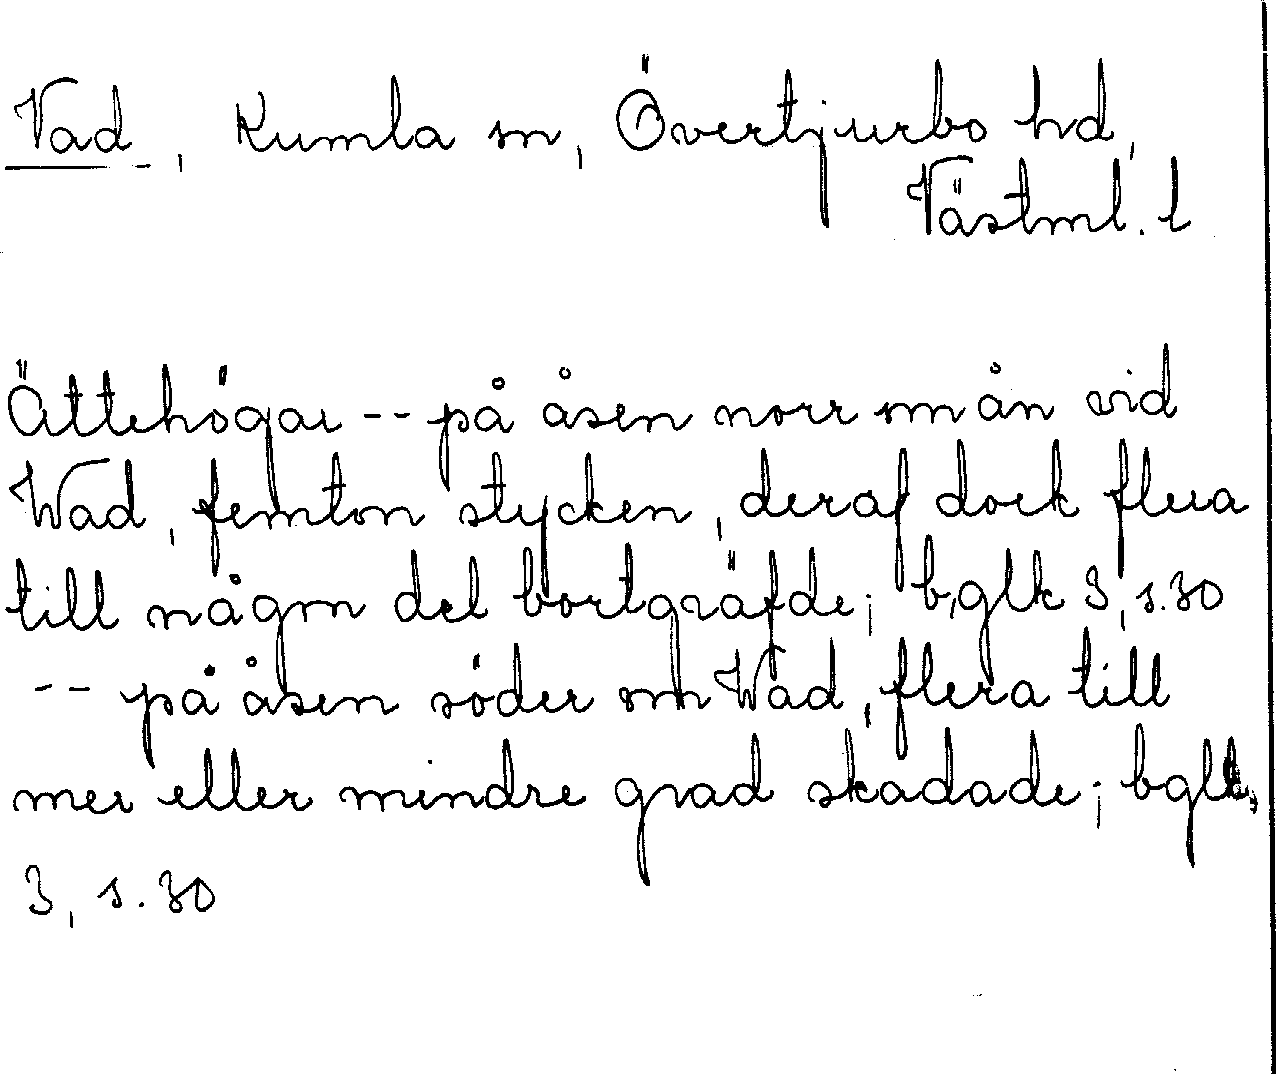 Vad, Kumla sn, Övertjurbo hd,
Västml. l
Ättehögar -- på åsen norr om ån vid
Wad, femton stycken, deraf dock flera
till någon del bortgräfde; bglk 3, s. 30
-- på åsen söder om Wad, flera till
mer eller mindre grad skadade; bglk,
3, s. 30